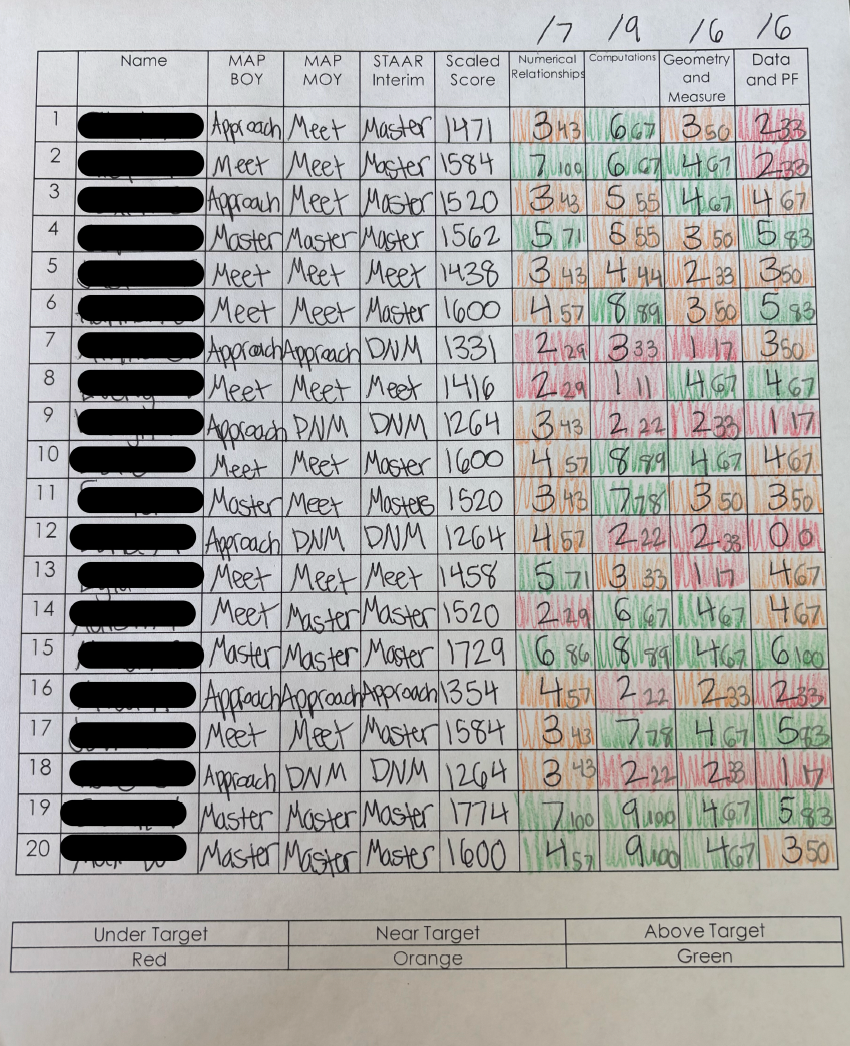 /7 /9 /6 /6
Name MAP BOY MAP MOY STAAR Interim Scaled Score Numerical Relationships Computations Geometry and Measure Data and PF
1 Approach Meet Master 1471 3 43 6 67 3 50 2 33
2 Meet Meet Master 1584 7 100 6 67 4 67 2 33
3 Approach Meet Master 1520 3 43 5 55 4 67 4 67
4 Master Master Master 1562 5 71 5 55 3 50 5 83
5 Meet Meet Meet 1438 3 43 4 44 2 33 3 50
6 Meet Meet Master 1600 4 57 8 89 3 50 5 83
7 Approach Approach DNM 1331 2 29 3 33 1 17 3 50
8 Meet Meet Meet 1416 2 29 1 11 4 67 4 67
9 Approach DNM DNM 1264 3 43 2 22 2 33 1 17
10 Meet Meet Master 1600 4 57 8 89 4 67 4 67
11 Master Meet Masters 1520 3 43 7 78 3 50 3 50
12 Approach DNM DNM 1264 4 57 2 22 2 33 0 0
13 Meet Meet Meet 1458 5 71 3 33 1 17 4 67
14 Meet Master Master 1520 2 29 6 67 4 67 4 67
15 Master Master Master 1729 6 86 8 89 4 67 6 100
16 Approach Approach Approach 1354 4 57 2 22 2 33 2 33
17 Meet Meet Master 1584 3 43 7 78 4 67 5 83
18 Approach DNM DNM 1264 3 43 2 22 2 33 1 17
19 Master Master Master 1774 7 100 9 100 4 67 5 83
20 Master Master Master 1600 4 57 9 100 4 67 3 50
Under Target Near Target Above Target
Red Orange Green